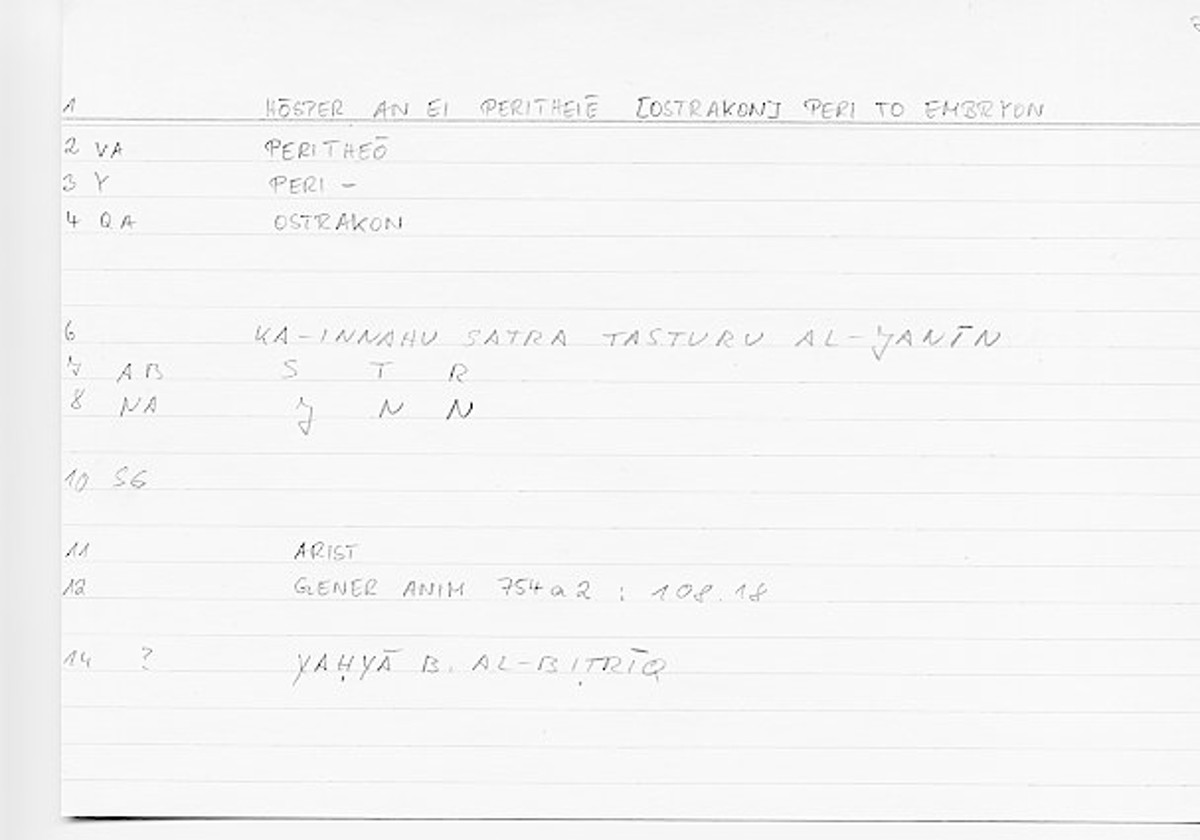 1 HŌSPER AN EI PERITHEIĒ [OSTRAKON] PERI TO EMBRYON
2 VA PERITHEŌ
3 Y PERI -
4 QA OSTRAKON
6 KA-INNAHU SATRA TASTURU AL-JANĪN
7 AB S T R
8 NA J N N
10 SG
11 ARIST
12 GENER ANIM 754a2 : 108.18
14 ? YAḤYĀ B. AL-BIṬRĪQ